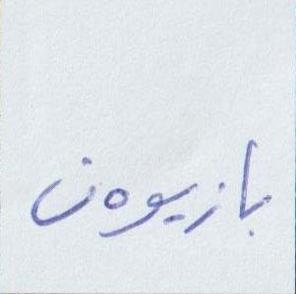 بازیون